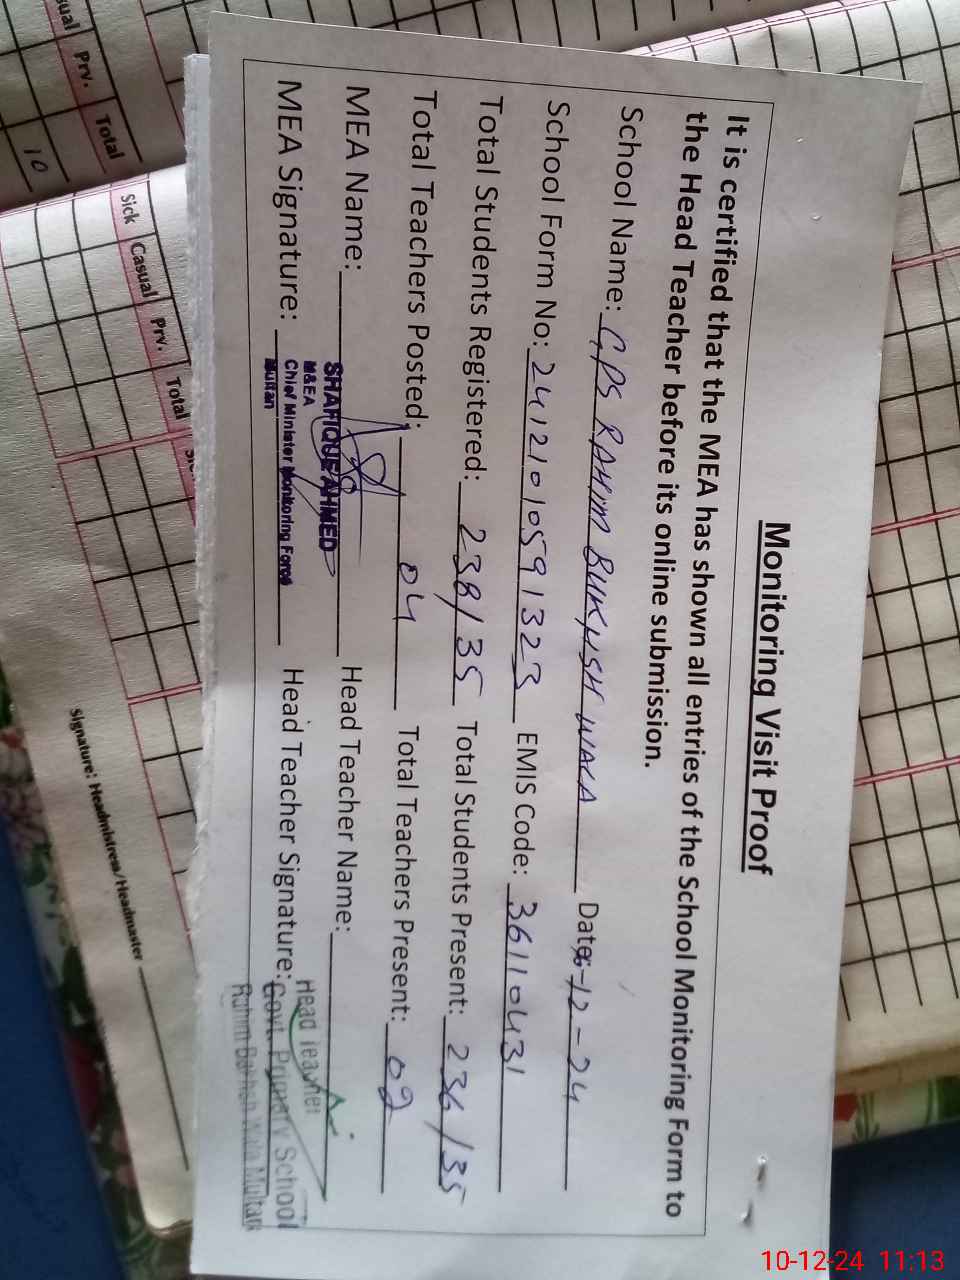 Monitoring Visit Proof
It is certified that the MEA has shown all entries of the School Monitoring Form to
the Head Teacher before its online submission.
School Name: GPS RAHIM BUKHSH WALA Date: -12-24
School Form No: 24121010591323 EMIS Code: 36110431
Total Students Registered: 238/35 Total Students Present: 236/35
Total Teachers Posted: 04 Total Teachers Present: 02
MEA Name: Head Teacher Name:
SHAFIQUE AHMED
M&EA
MEA Signature: Head Teacher Signature:
Chief Minister Monitoring Force
Multan
Head Teacher
Govt. Primary School
Rahim Bakhsh Wala Multan
Prv. Total
10
Sick Casual Prv. Total
Signature: Headmistress/Headmaster
10-12-24 11:13